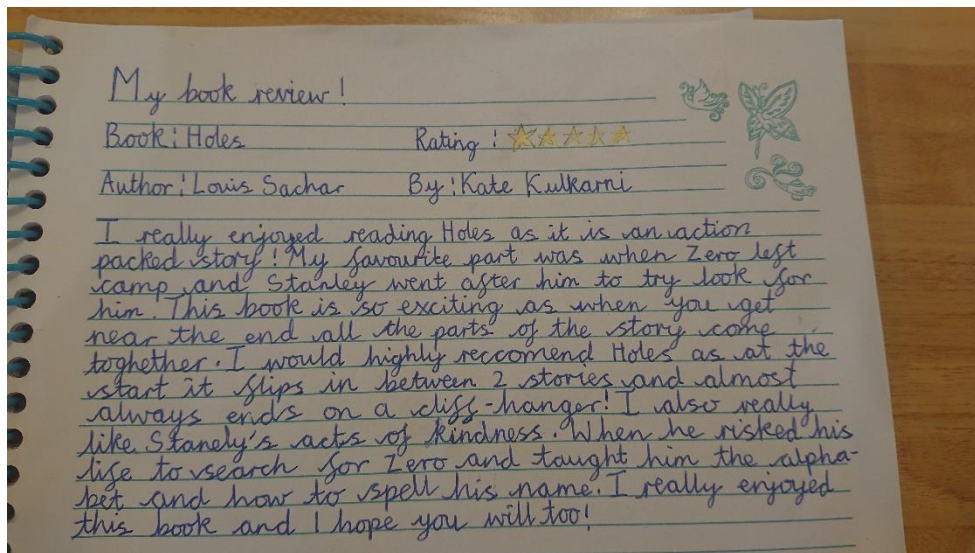 My book review!
Book: Holes Rating:
Author: Louis Sachar By: Kate Kulkarni
I really enjoyed reading Holes as it is an action
packed story! My favourite part was when Zero left
camp and Stanley went after him to try look for
him. This book is so exciting as when you get
near the end all the parts of the story come
toghether. I would highly reccomend Holes as at the
start it flips in between 2 stories and almost
always ends on a cliff-hanger! I also really
like Stanely's acts of kindness. When he risked his
life to search for Zero and taught him the alpha-
bet and how to spell his name. I really enjoyed
this book and I hope you will too!